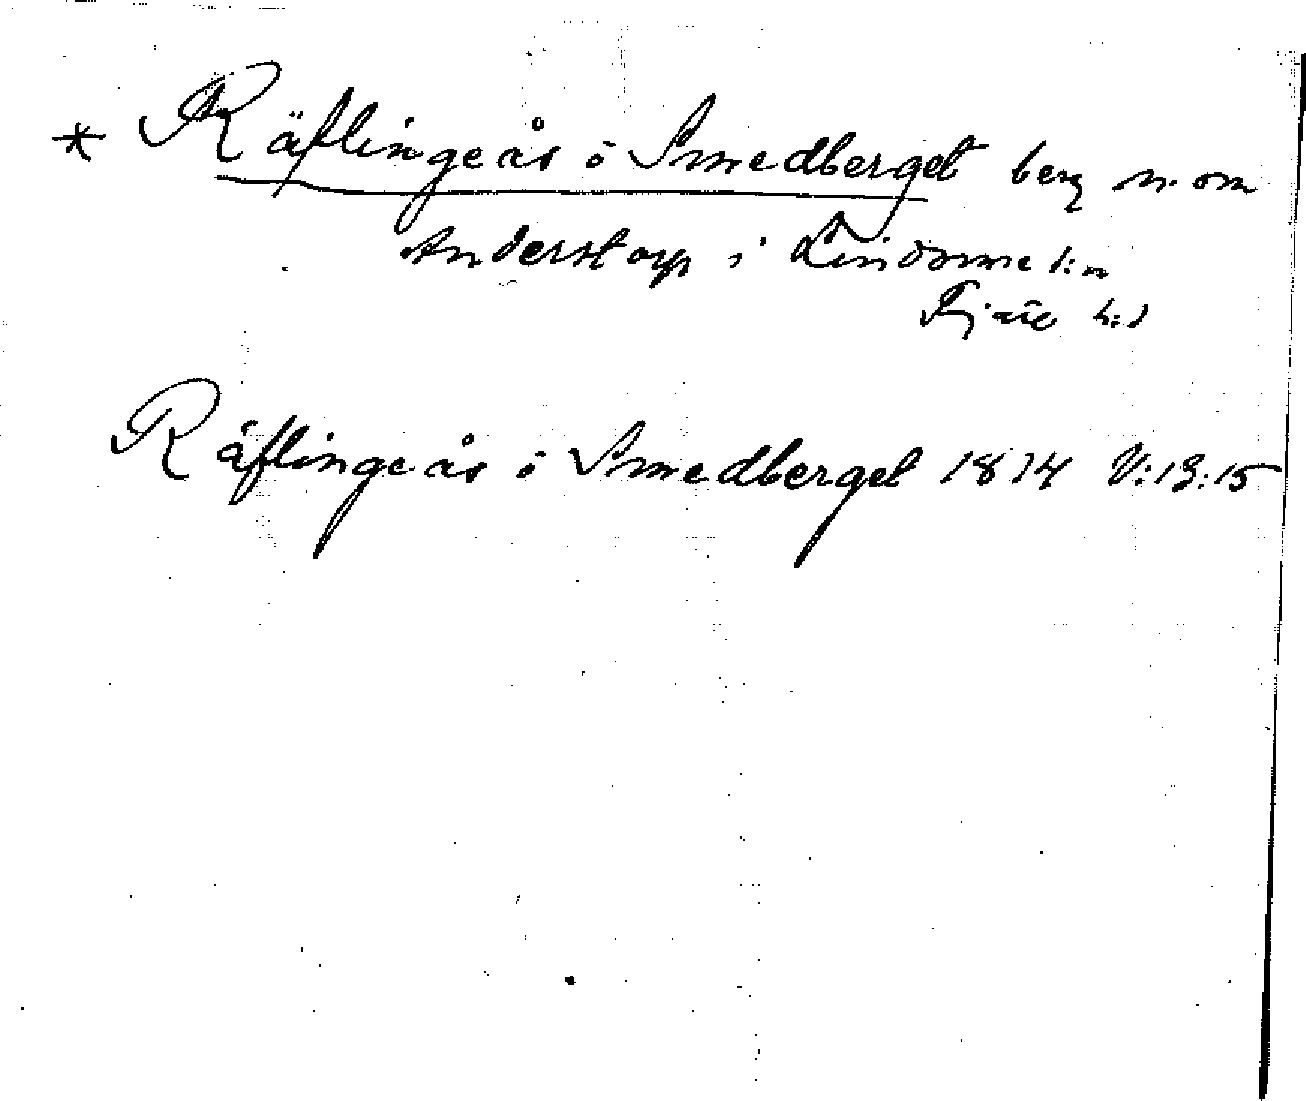 * Räflingeås ö Smedberget berg n. om
Anderstorp i Lindome s:n
Fjäre h:d
Räflingeås ö Smedberget 1814 V:13:15